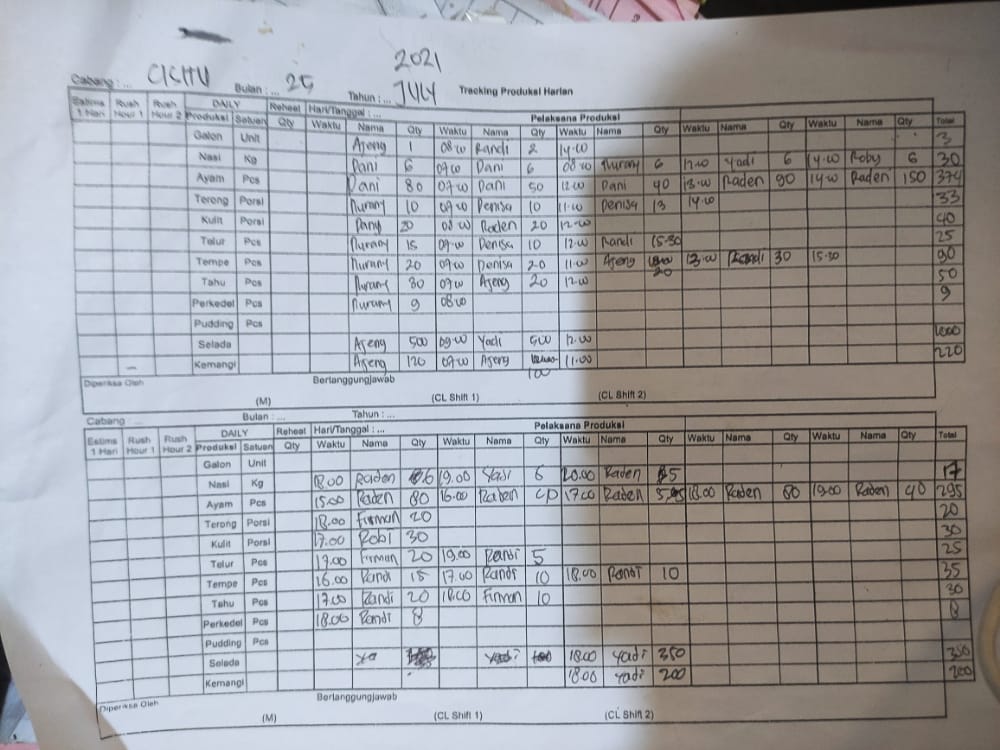 2021
Cabang : ... CICHU Bulan : ... 25 Tahun : ... JULY Tracking Produksi Harian
Estima 1 Hari Rush Hour 1 Rush Hour 2 DAILY Reheat Hari/Tanggal : ... Pelaksana Produksi
Produksi Satuan Qty Waktu Nama Qty Waktu Nama Qty Waktu Nama Qty Waktu Nama Qty Waktu Nama Qty Total
Galon Unit Ajeng 1 08.00 Randi 2 14.00 3
Nasi Kg Dani 6 07.00 Dani 6 08.00 Nurany 6 12.00 Yadi 6 14.00 Roby 6 30
Ayam Pcs Dani 80 07.00 Dani 50 12.00 Dani 40 13.00 Raden 90 14.00 Raden 150 374
Terong Porsi Nurany 10 07.00 Denisa 10 11.00 Denisa 13 14.00 33
Kulit Porsi Dany 20 08.00 Raden 20 12.00 40
Telur Pcs Nurany 15 09.00 Denisa 10 12.00 Randi 15.30 25
Tempe Pcs Nurany 20 09.00 Denisa 20 11.00 Ajeng 20 13.00 Randi 30 15.30 90
Tahu Pcs Nurany 30 07.00 Ajeng 20 12.00 50
Perkedel Pcs Nurany 9 08.00 9
Pudding Pcs
Selada Ajeng 500 09.00 Yadi 500 12.00 1000
Kemangi Ajeng 120 07.00 Ajeng 100 11.00 220
Diperiksa Oleh Bertanggungjawab
(M) (CL Shift 1) (CL Shift 2)
Cabang : ... Bulan : ... Tahun : ...
Estima 1 Hari Rush Hour 1 Rush Hour 2 DAILY Reheat Hari/Tanggal : ... Pelaksana Produksi
Produksi Satuan Qty Waktu Nama Qty Waktu Nama Qty Waktu Nama Qty Waktu Nama Qty Waktu Nama Qty Total
Galon Unit
Nasi Kg 18.00 Raden 6 19.00 Yadi 6 20.00 Raden 5 17
Ayam Pcs 15.00 Raden 80 16.00 Raden 40 17.00 Raden 18.00 Raden 80 19.00 Raden 40 295
Terong Porsi 18.00 Firman 20 20
Kulit Porsi 17.00 Robi 30 30
Telur Pcs 17.00 Firman 20 19.00 Randi 5 25
Tempe Pcs 16.00 Randi 15 17.00 Randi 10 18.00 Randi 10 35
Tahu Pcs 17.00 Randi 20 18.00 Firman 10 30
Perkedel Pcs 18.00 Randi 8 8
Pudding Pcs
Selada 18.00 Yadi 350 350
Kemangi 18.00 Yadi 200 200
Diperiksa Oleh Bertanggungjawab
(M) (CL Shift 1) (CL Shift 2)